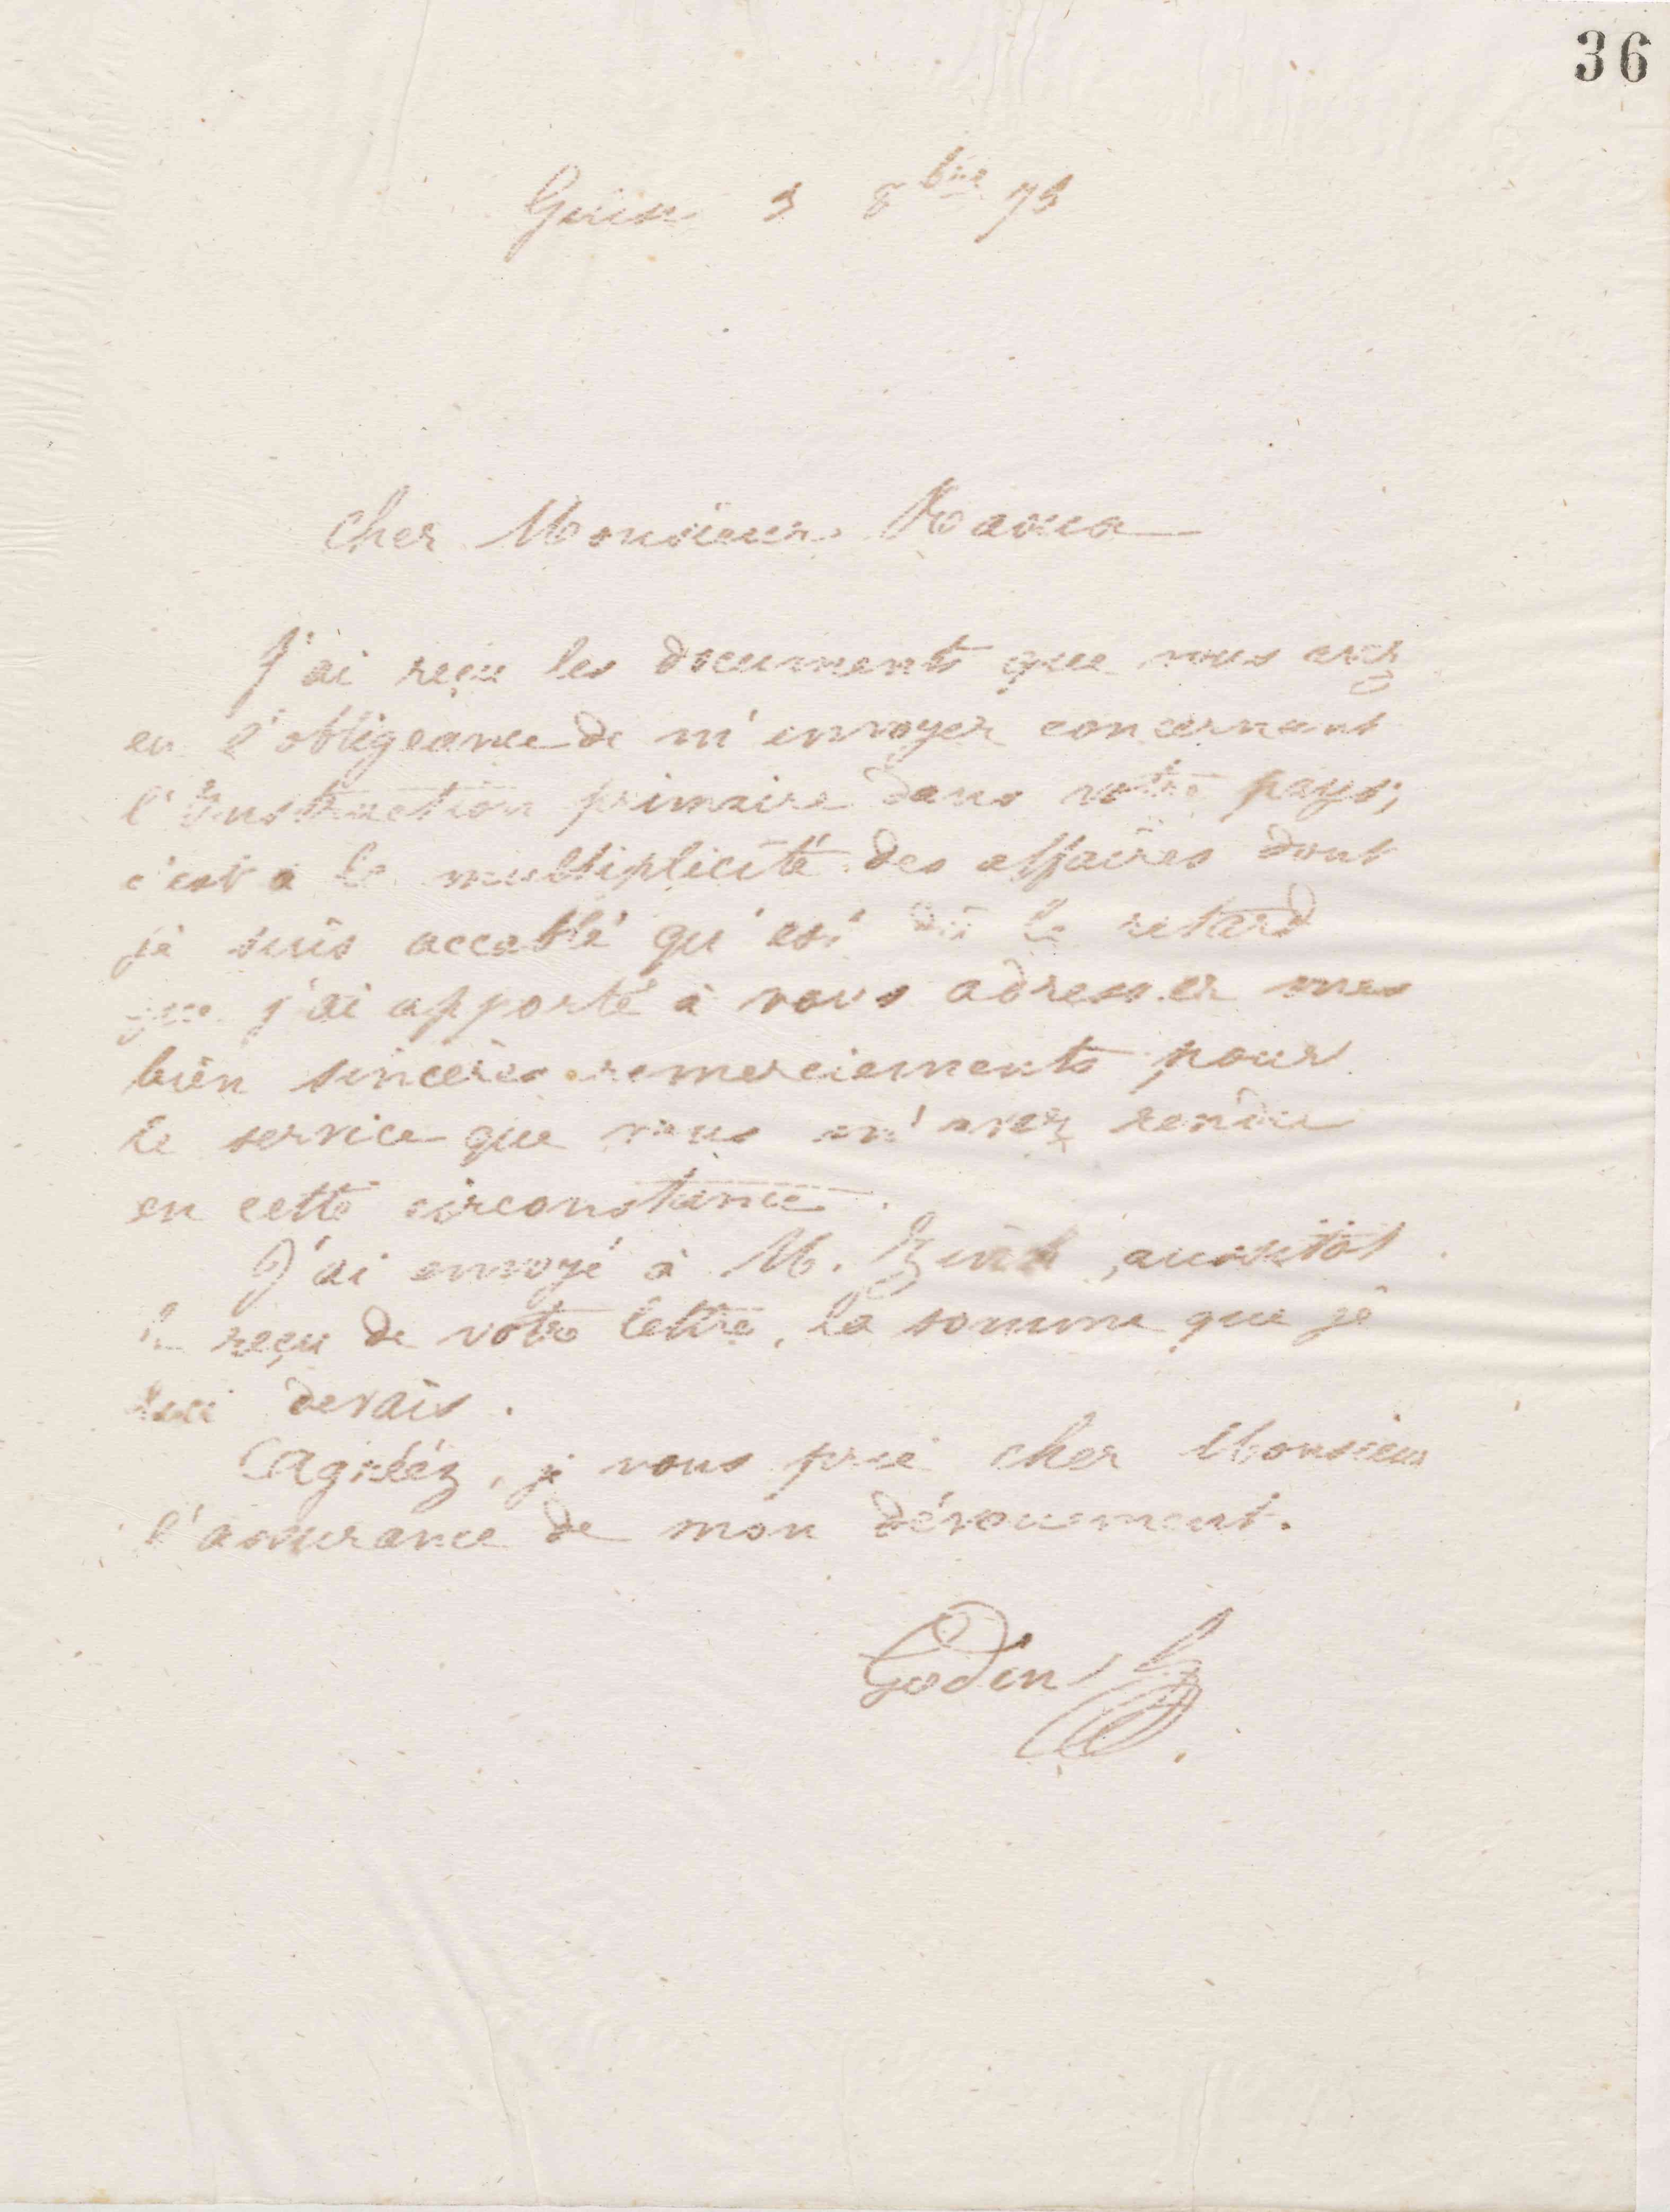 36
Guise 3 8bre 73
Cher Monsieur Raoux
J'ai reçu les documents que vous avez
eu l'obligeance de m'envoyer concernant
l'Instruction primaire dans votre pays;
c'est à la multiplicité des affaires dont
je suis accablé qu'est dû le retard
que j'ai apporté à vous adresser mes
bien sincères remerciements pour
le service que vous m'avez rendu
en cette circonstance.
J'ai envoyé à M. aussitôt
le reçu de votre lettre, la somme que je
lui devais.
Agréez, je vous prie cher Monsieur
l'assurance de mon dévouement.
Godin